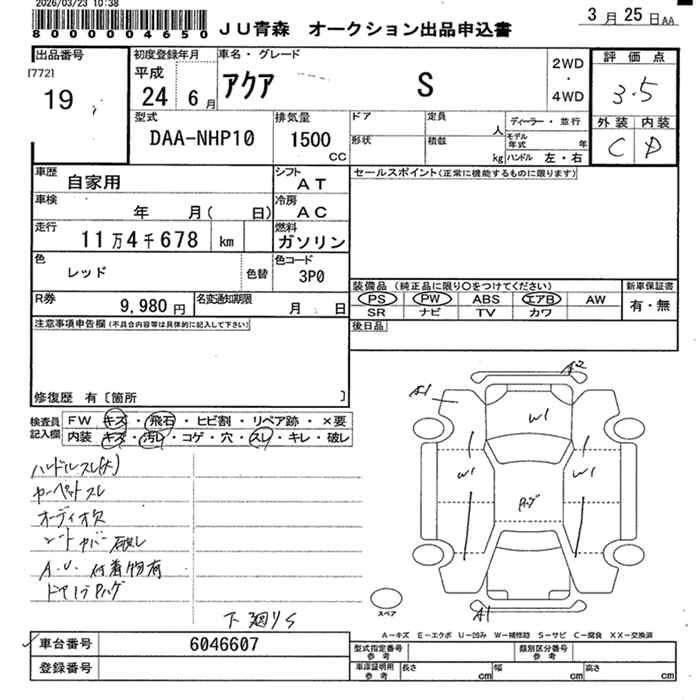 2026/03/23 10:38
8000004650
JU青森 オークション出品申込書
3月25日AA
出品番号
[772]
19
初度登録年月
平成
24 6月
車名・グレード
アクア S
2WD
・
4WD
評価点
3.5
外装 内装
C D
型式
DAA-NHP10
排気量
1500
CC
ドア
定員
人
ディーラー・並行
形状
積載
kg
モデル年式 年
ハンドル 左・右
車歴
自家用
シフト
AT
セールスポイント(正常に機能するものに限ります)
車検
年 月( 日)
冷房
AC
走行
11万4千678 km
燃料
ガソリン
色
レッド
色替
色コード
3P0
装備品(純正品に限り○をつけてください)
新車保証書
PS PW ABS エアB AW
SR ナビ TV カワ
有・無
R券
9,980円
名変通知期限
月 日
後日品
注意事項申告欄(不具合内容等は具体的に記入して下さい)
修復歴 有[箇所 ]
検査員記入欄
FW キズ・飛石・ヒビ割・リペア跡・×要
内装 キズ・汚レ・コゲ・穴・スレ・キレ・破レ
ハンドルスレ(大)
カーペットスレ
オーディオ欠
シートカバー破レ
A.U.付着物有
下廻りS
A1
A2
W1
W1
W1
A1
スペア
A-キズ E-エクボ U-凹み W-補修跡 S-サビ C-腐食 XX-交換済
車台番号
6046607
登録番号
型式指定番号
参考
類別区分番号
参考
車庫証明用
参考
長さ cm
幅 cm
高さ cm